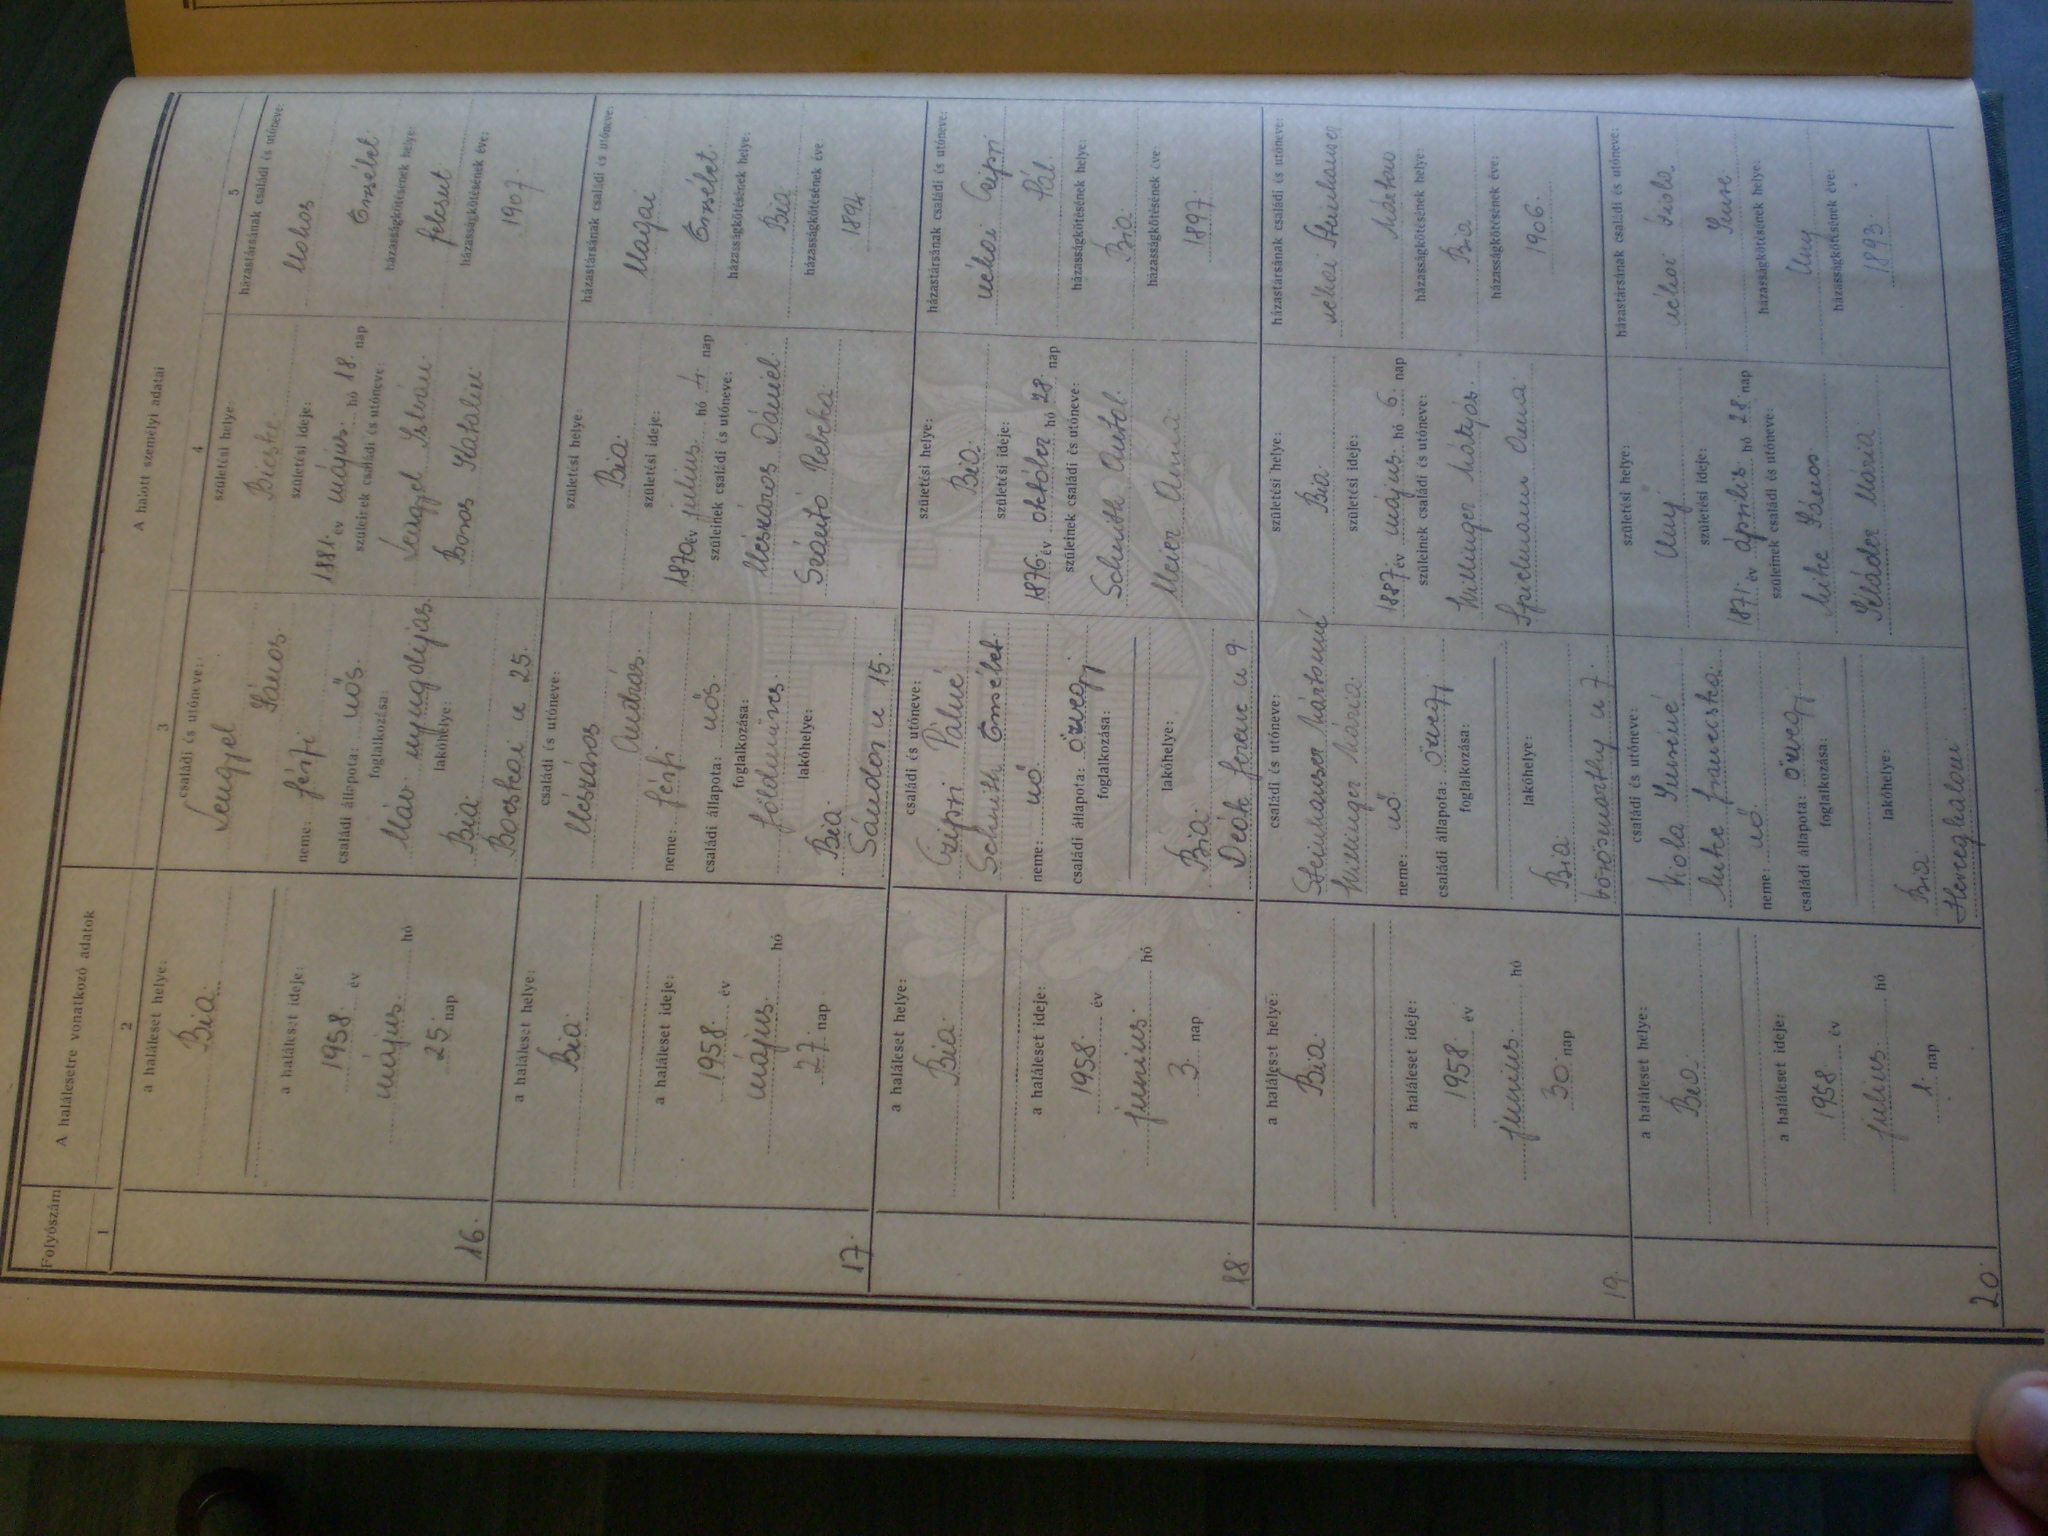 Folyószám
A halálesetre vonatkozó adatok
A halott személyi adatai
1
2
3
4
5
16.
a haláleset helye:
Bia.
a haláleset ideje:
1958. év
május. hó
25. nap
családi és utóneve:
Lengyel
János.
neme: férfi
családi állapota: nős.
foglalkozása:
Máv. nyugdíjas.
lakóhelye:
Bia.
Bocskai u 25.
születési helye:
Bicske.
születési ideje:
1881. év május. hó 18. nap
szüleinek családi és utóneve:
Lengyel István.
Boros Katalin.
házastársának családi és utóneve:
Mohos
Erzsébet.
házasságkötésének helye:
Felcsut
házasságkötésének éve:
1907.
17.
a haláleset helye:
Bia.
a haláleset ideje:
1958. év
május. hó
27. nap
családi és utóneve:
Mészáros
András.
neme: férfi
családi állapota: nős.
foglalkozása:
földműves.
lakóhelye:
Bia.
Sándor u 15.
születési helye:
Bia.
születési ideje:
1870 év július. hó 4. nap
szüleinek családi és utóneve:
Mészáros Dániel.
Szántó Rebeka.
házastársának családi és utóneve:
Magai
Erzsébet.
házasságkötésének helye:
Bia.
házasságkötésének éve:
1894
18.
a haláleset helye:
Bia.
a haláleset ideje:
1958. év
június. hó
3. nap
családi és utóneve:
Czipri Pálné
Schmith Erzsébet.
neme: nő.
családi állapota: özvegy.
foglalkozása:
lakóhelye:
Bia.
Deák Ferenc u 9.
születési helye:
Bia.
születési ideje:
1876. év október hó 28. nap
szüleinek családi és utóneve:
Schmith Antal.
Meier Anna
házastársának családi és utóneve:
néhai Czipri
Pál.
házasságkötésének helye:
Bia.
házasságkötésének éve:
1897.
19.
a haláleset helye:
Bia.
a haláleset ideje:
1958. év
június. hó
30. nap
családi és utóneve:
Steinhauser Mártonné
Millinger Mária.
neme: nő.
családi állapota: özvegy
foglalkozása:
lakóhelye:
Bia.
Vörösmarthy u 7.
születési helye:
Bia.
születési ideje:
1887. év május. hó 6. nap
szüleinek családi és utóneve:
Millinger Mátyás.
Spielmann Anna.
házastársának családi és utóneve:
néhai Steinhauser
Márton
házasságkötésének helye:
Bia
házasságkötésének éve:
1906.
20.
a haláleset helye:
Bia.
a haláleset ideje:
1958. év
július. hó
1. nap
családi és utóneve:
Viola Imréné
Mike Franciska.
neme: nő.
családi állapota: özvegy
foglalkozása:
lakóhelye:
Bia.
Herceghalom
születési helye:
Uny
születési ideje:
1871. év április. hó 28. nap
szüleinek családi és utóneve:
Mike János.
Mária
házastársának családi és utóneve:
néhai Viola
Imre.
házasságkötésének helye:
Uny
házasságkötésének éve:
1893.